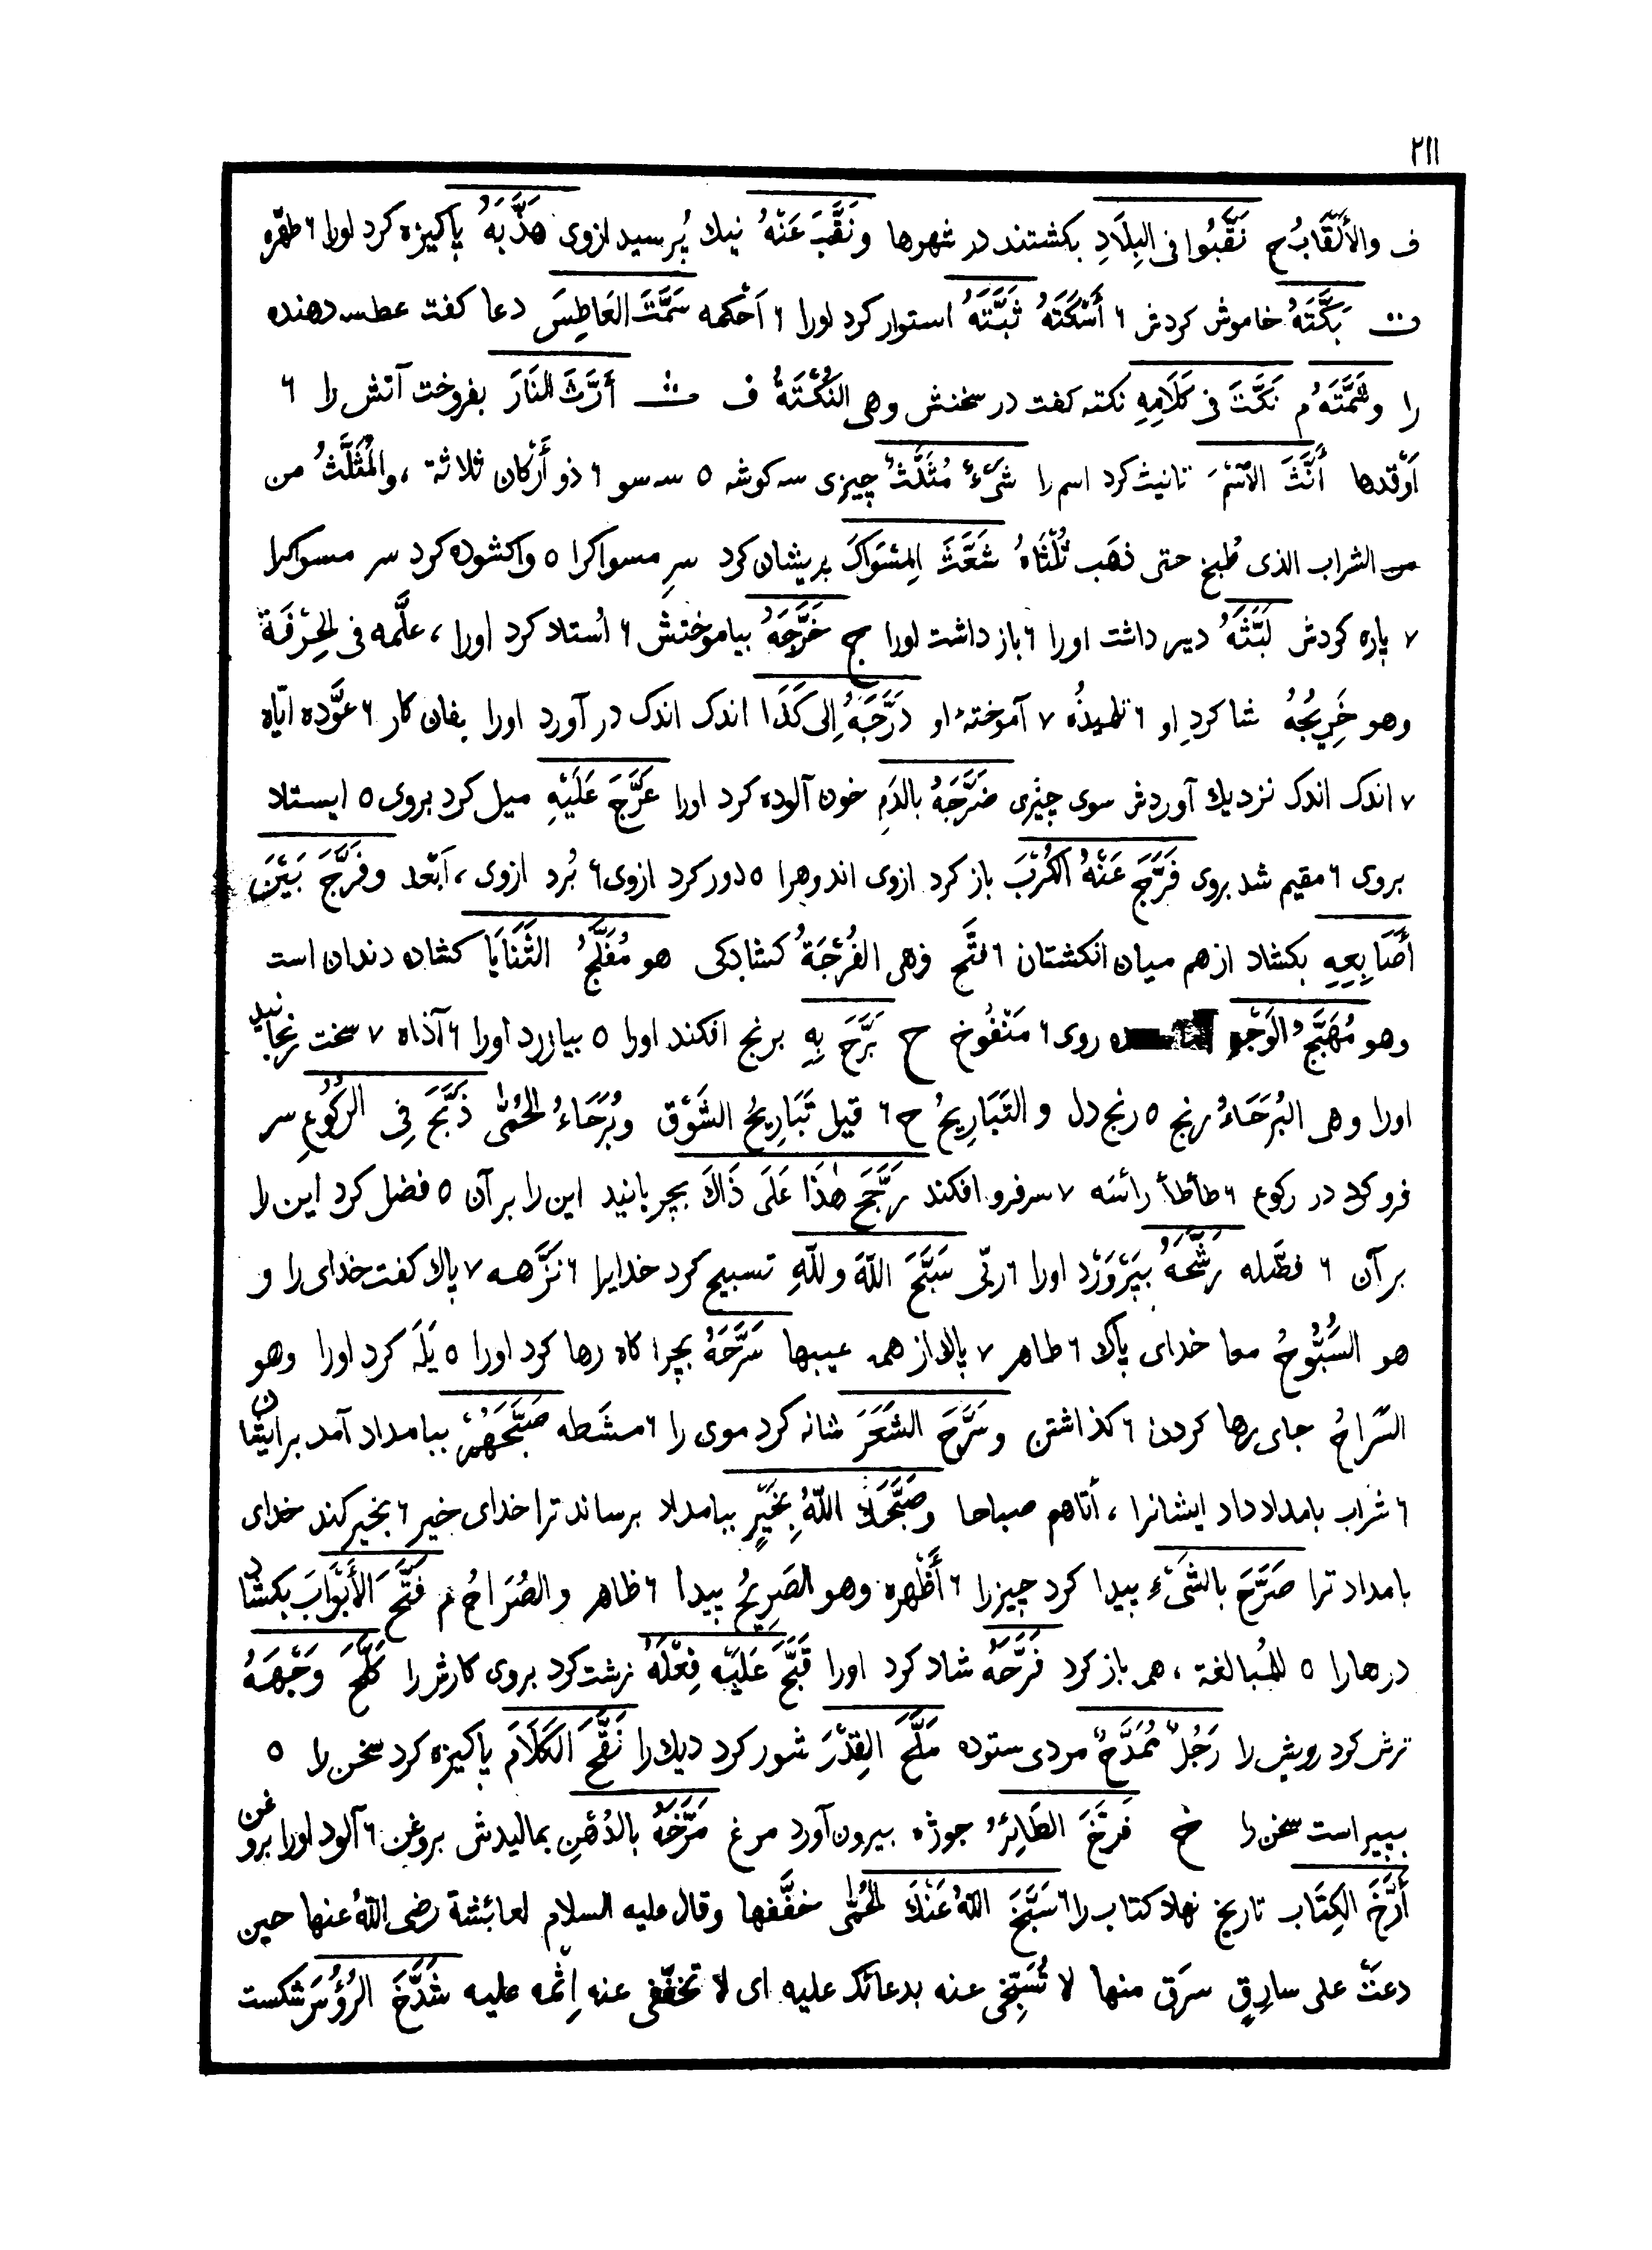 ٢١١
ف والأَلْقَابُ ج نَقَّبُوا فى البِلَادِ بكشتند در شهرها ونَقَّبَ عَنْهُ نيك پُرسيد ازوى هَذَّبَهُ پاكيزه كرد اورا ٦ طهّره
ت بَكَّتَهُ خاموش كردش ٦ أَسْكَتَهُ ثَبَّتَهُ استوار كرد اورا ٦ اَحْكمه سَمَّتَ العَاطِسَ دعا كفت عطسه دهنده
را وشَمَّتَهُ م نَكَّتَ فى كَلَامِهِ نكته كفت در سخنش وهى النُكْتَةُ ف ث أَرَّثَ النَارَ بفروخت آتش را ٦
اَوْقدها أَنَّثَ الاسْمَ تانيث كرد اسم را شَىْءٌ مُثَلَّثٌ چيزى سه كوشه ٥ سه سو ٦ ذو أَرْكان ثلاثة ، والمُثَلَّثُ من
الشراب الذى طُبخ حتى ذهَب ثُلْثَاهُ شَعَّثَ المِسْوَاكَ پريشان كرد سرِ مسواكرا ٥ واكشوده كرد سر مسواكرا
٧ پاره كردش لَبَّثَهُ دير داشت اورا ٦ باز داشت اورا ج خَرَّجَهُ بياموختش ٦ اُستاد كرد اورا ، علَّمه فى الحِرْفَة
وهو خَرِيجُهُ شاكردِ او ٦ تلميذُه ٧ آموختهٔ او دَرَّجَهُ اِلى كَذَا اندك اندك در آورد اورا بفان كار ٦ عوَّده ايّاه
٧ اندك اندك نزديك آوردش سوى چيزى ضَرَّجَهُ بالدَمِ خون آلوده كرد اورا عَرَّجَ عَلَيْهِ ميل كرد بروى ٥ ايستاد
بروى ٦ مقيم شد بروى فَرَّجَ عَنْهُ الكُرَبَ باز كرد ازوى اندوهرا ٥ دور كرد ازوى ٦ بُرد ازوى ، اَبْعد وفَرَّجَ بَيْنَ
أَصَابِعِهِ بكشاد از هم ميان انكشتان ٦ فتَّح وهى الفُرْجَةُ كشادكى هو مُفَلَّجُ الثَنَايَا كشاده دندان است
وهو مُهَبَّجُ الوَجْهِ روى ٦ مَنْفُوخ ح بَرَّحَ بِهِ برنج افكند اورا ٥ بيازرد اورا ٦ آذاه ٧ سخت رنجانيد
اورا وهى البُرَحَاءُ رنج ٥ رنج دل و التَبَارِيحُ ج ٦ قيل تَبَارِيحُ الشَوْق وبُرَحَاءُ الحُمَّى ذَبَّحَ فِى الرُكُوعِ سر
فرو كرد در ركوع ٦ طأطأ رائسَه ٧ سر فرو افكند رَجَّحَ هٰذَا عَلَى ذَاكَ بچربانيد اين را بر آن ٥ فضل كرد اين را
بر آن ٦ فضَّله رَشَّحَهُ بپَرْوَرْد اورا ٦ ربّى سَبَّحَ اللّهَ وللّهِ تسبيح كرد خدايرا ٦ نَزَّهه ٧ پاك كفت خداى را و
هو السُبُّوحُ معا خداى پاك ٦ طاهر ٧ پاك از همه عيبها سَرَّحَهُ بچراكاه رها كرد اورا ٥ يَلَه كرد اورا وهو
السَراحُ جاى رها كردن ٦ كذاشتن وسَرَّحَ الشَعَرَ شانه كرد موى را ٦ مشَطه صَبَّحَهُمْ ببامداد آمد برايشان
٦ شراب بامداد داد ايشانرا ، أتاهم صباحا وصَبَّحَكَ اللّهُ بِخَيْرٍ ببامداد برساند ترا خداى خير ٦ بخير كند خداى
بامداد ترا صَرَّحَ بالشَىْءِ پيدا كرد چيزرا ٦ أَظْهره وهو الصَرِيحُ پيدا ٦ ظاهر والصُرَاحُ م فَتَّحَ الأَبْوَابَ بكشاد
درهارا ٥ للمُبالغة ، همه باز كرد فَرَّحَهُ شاد كرد اورا قَبَّحَ عَلَيْهِ فِعْلَهُ زشت كرد بروى كارش را كَلَّحَ وَجْهَهُ
ترش كرد رويش را رَجُلٌ مُمَدَّحٌ مردى ستوده مَلَّحَ القِدْرَ شور كرد ديك را نَقَّحَ الكَلَامَ پاكيزه كرد سخن را ٥
بپيراست سخن را خ فَرَّخَ الطَائِرُ جوژه بيرون آورد مرغ مَرَّخَهُ بالدُهْنِ بماليدش بروغن ٦ آلود اورا بروغن
أَرَّخَ الكِتَاب تاريخ نهاد كتاب را سَبَّخَ اللّهُ عَنْكَ الحُمَّى خفَّفها وقال عليه السلام لعائشة رضى اللّهُ عنها حين
دعَتْ على سارِقٍ سرَق منها لا تُسَبِّخى عنه بدعائك عليه اى لا تخفّفى عنه اِثْمه عليه شَدَّخَ الرُؤُسَ شكست